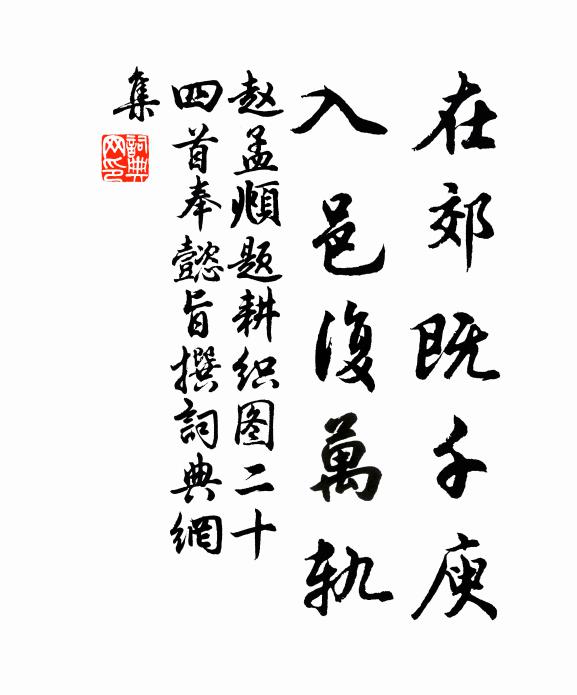 在郊既千庾
入邑復萬軌
赵孟頫题耕织图二十
四首奉懿旨撰詞典網
集
詞典网印